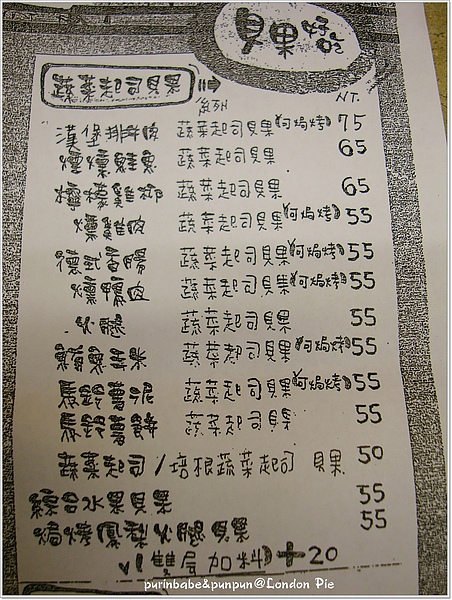 貝果好吃
蔬菜起司貝果
系列
NT.
漢堡排肉 蔬菜起司貝果(可焗烤) 75
燻鮭魚 蔬菜起司貝果 65
檸檬雞柳 蔬菜起司貝果 65
燻雞肉 蔬菜起司貝果(可焗烤) 55
德式香腸 蔬菜起司貝果(可焗烤) 55
燻鴨肉 蔬菜起司貝果(可焗烤) 55
火腿 蔬菜起司貝果 55
鮪魚玉米 蔬菜起司貝果(可焗烤) 55
馬鈴薯泥 蔬菜起司貝果(可焗烤) 55
馬鈴薯餅 蔬菜起司貝果 55
蔬菜起司/培根蔬菜起司 貝果 50
綜合水果貝果 55
焗烤鳳梨火腿貝果 55
(雙层加料)+20
purinbabe&punpun@London Pie